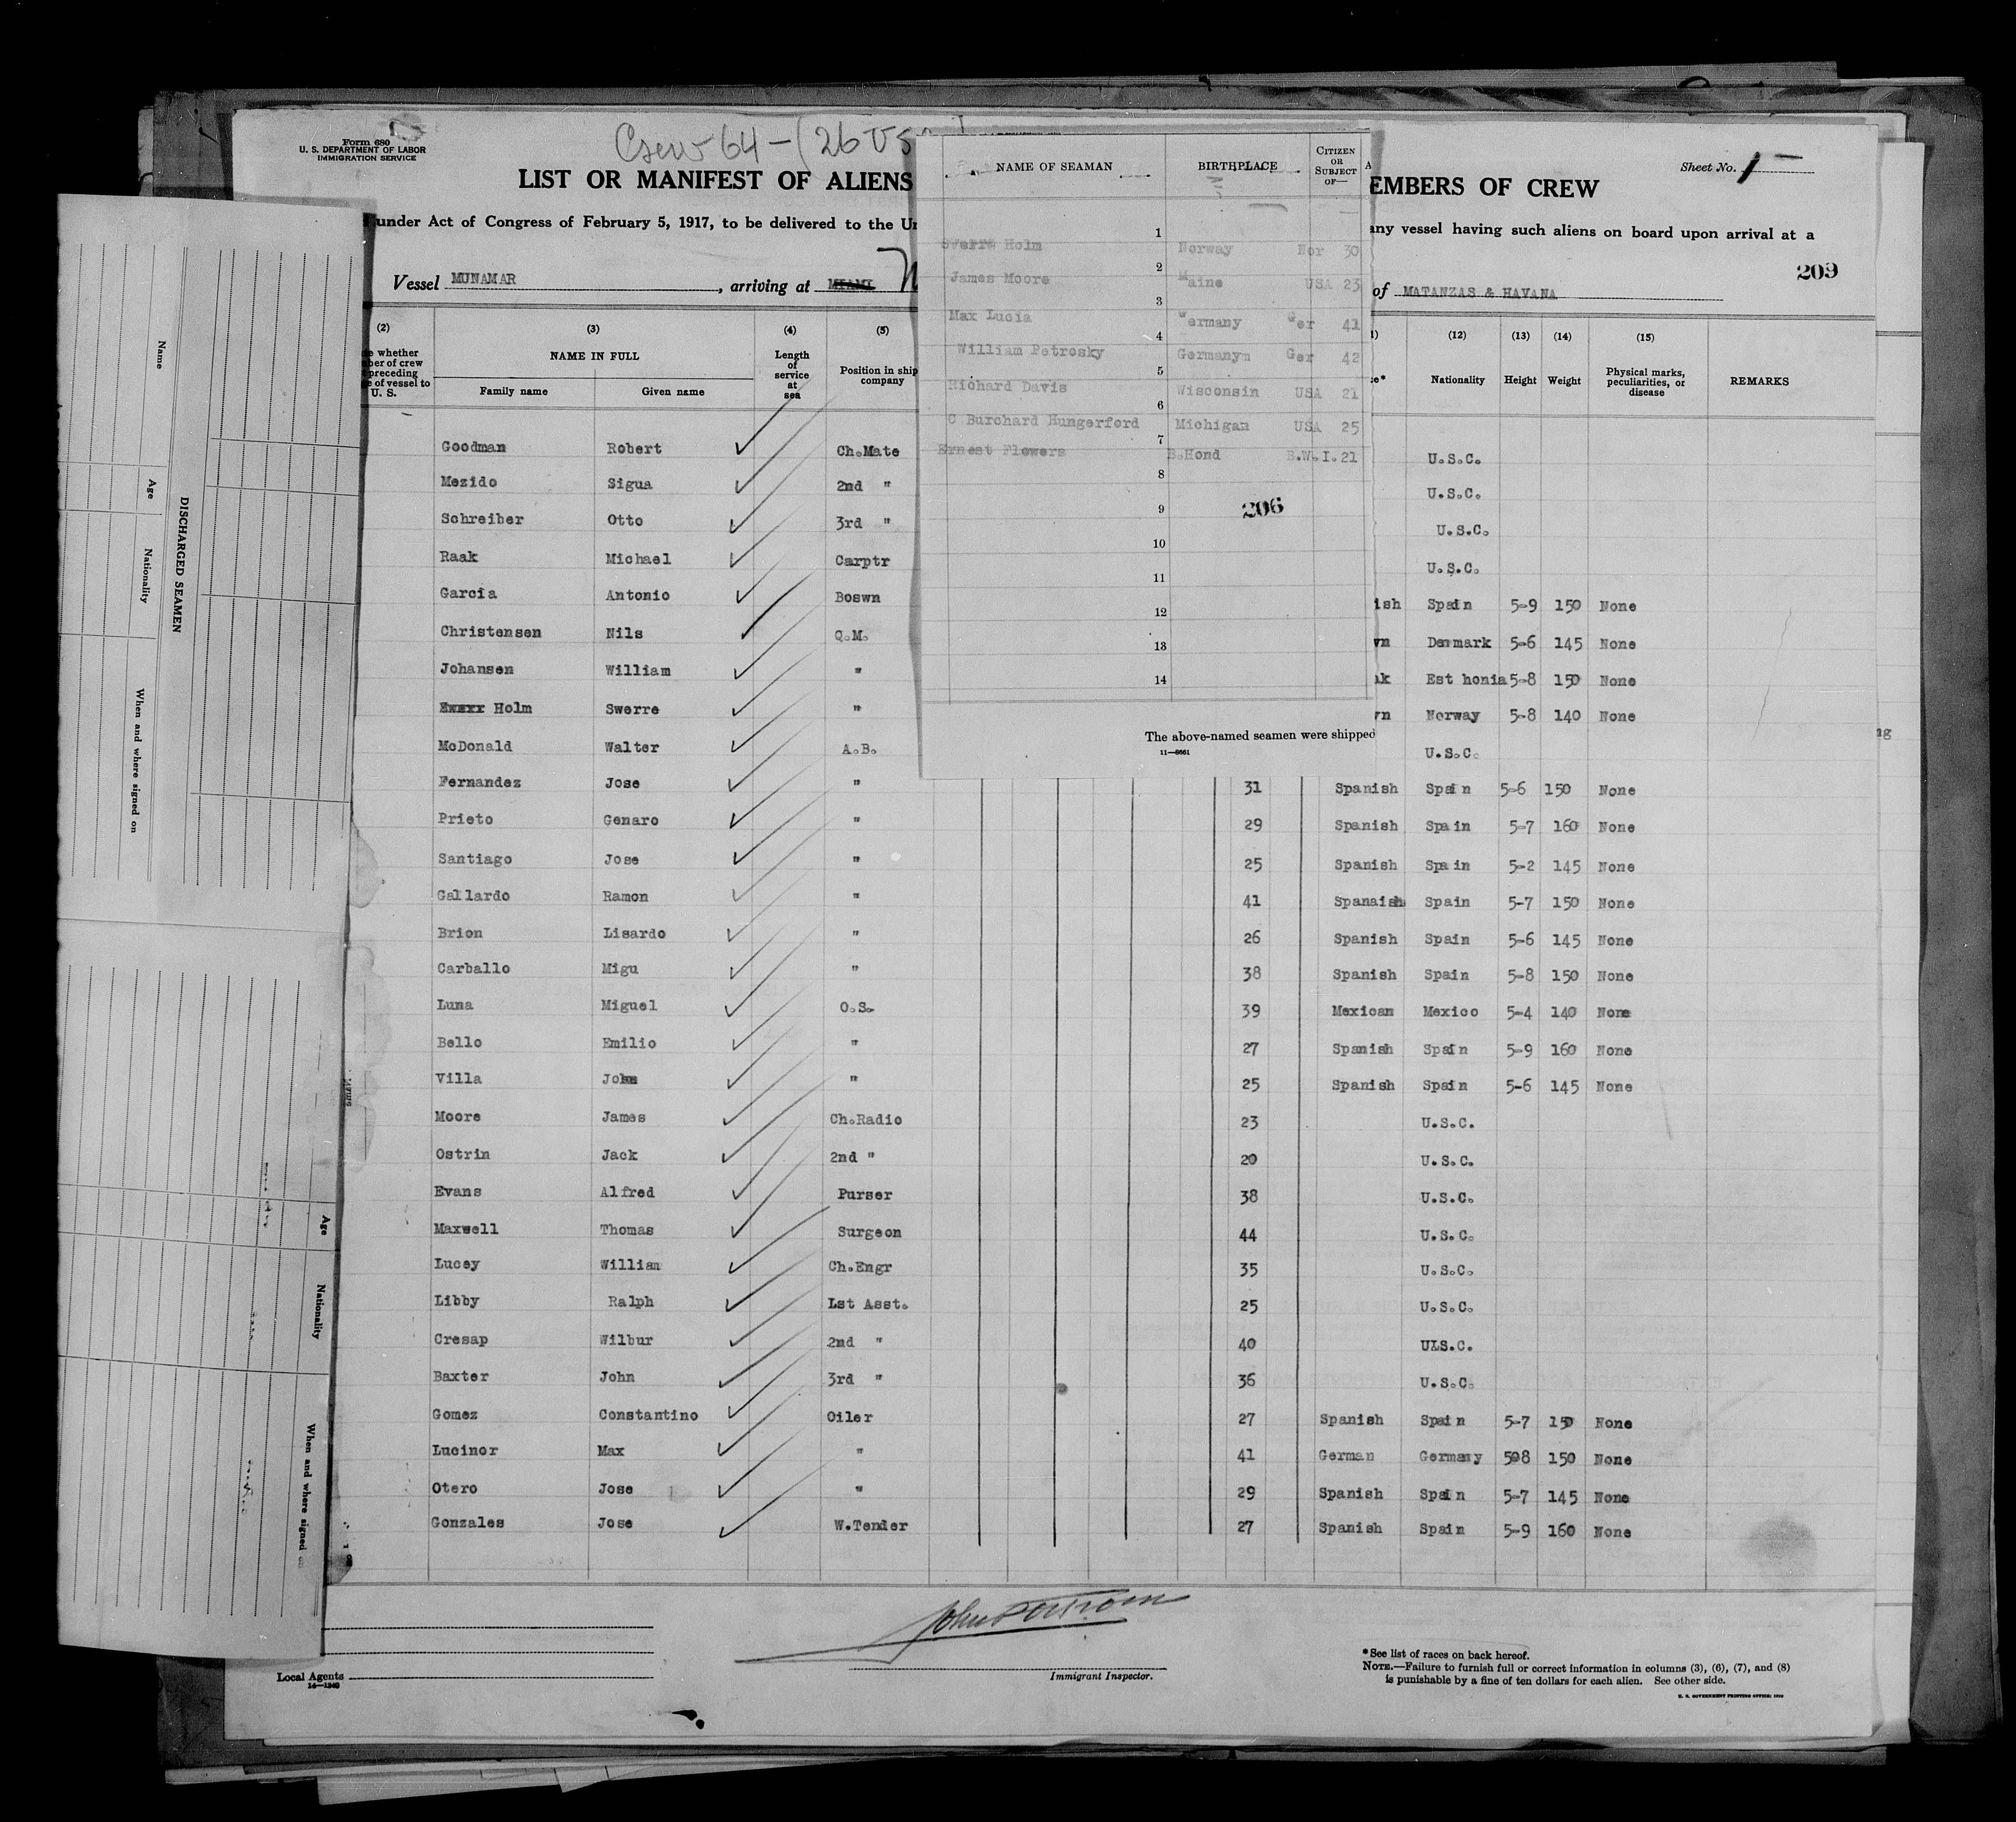 Crew 64 - (26 US
Form 680
U. S. DEPARTMENT OF LABOR
IMMIGRATION SERVICE
LIST OR MANIFEST OF ALIENS
EMBERS OF CREW
Sheet No. 1
under Act of Congress of February 5, 1917, to be delivered to the Un
any vessel having such aliens on board upon arrival at a
209
Vessel MUNAMAR, arriving at MIAMI
of MATANZAS & HAVANA
(2) (3) (4) (5) (12) (13) (14) (15)
whether
ber of crew
preceding
e of vessel to
U. S.
NAME IN FULL
Family name Given name
Length
of
service
at
sea
Position in ship
company
Nationality Height Weight
Physical marks,
peculiarities, or
disease
REMARKS
Goodman Robert Ch.Mate U.S.C.
Mezido Sigua 2nd " U.S.C.
Schreiber Otto 3rd " U.S.C.
Raak Michael Carptr U.S.C.
Garcia Antonio Boswn ish Spain 5-9 150 None
Christensen Nils Q.M. wn Denmark 5-6 145 None
Johansen William " ak Est honia 5-8 150 None
Holm Swerre " wn Norway 5-8 140 None
McDonald Walter A.B. U.S.C.
Fernandez Jose " 31 Spanish Spain 5-6 150 None
Prieto Genaro " 29 Spanish Spain 5-7 160 None
Santiago Jose " 25 Spanish Spain 5-2 145 None
Gallardo Ramon " 41 Spanaish Spain 5-7 150 None
Brion Lisardo " 26 Spanish Spain 5-6 145 None
Carballo Migu " 38 Spanish Spain 5-8 150 None
Luna Miguel O.S. 39 Mexican Mexico 5-4 140 None
Bello Emilio " 27 Spanish Spain 5-9 160 None
Villa John " 25 Spanish Spain 5-6 145 None
Moore James Ch.Radio 23 U.S.C.
Ostrin Jack 2nd " 20 U.S.C.
Evans Alfred Purser 38 U.S.C.
Maxwell Thomas Surgeon 44 U.S.C.
Lucey William Ch.Engr 35 U.S.C.
Libby Ralph Lst Asst. 25 U.S.C.
Cresap Wilbur 2nd " 40 U.S.C.
Baxter John 3rd " 36 U.S.C.
Gomez Constantino Oiler 27 Spanish Spain 5-7 150 None
Lucinor Max " 41 German Germany 508 150 None
Otero Jose " 29 Spanish Spain 5-7 145 None
Gonzales Jose W.Tender 27 Spanish Spain 5-9 160 None
Immigrant Inspector.
Local Agents
14—1240
*See list of races on back hereof.
NOTE.—Failure to furnish full or correct information in columns (3), (6), (7), and (8)
is punishable by a fine of ten dollars for each alien. See other side.
NAME OF SEAMAN BIRTHPLACE
CITIZEN
OR
SUBJECT
OF—
1
Swerre Holm Norway Nor 30
2
James Moore Maine USA 23
3
Max Lucia Germany Ger 41
4
William Petrosky Germanym Ger 42
5
Richard Davis Wisconsin USA 21
6
C Burchard Hungerford Michigan USA 25
7
Ernest Flowers B.Hond B.W.I. 21
8
9
206
10
11
12
13
14
The above-named seamen were shipped
11—8661
DISCHARGED SEAMEN
Name Age Nationality When and where signed on
Age Nationality When and where signed on